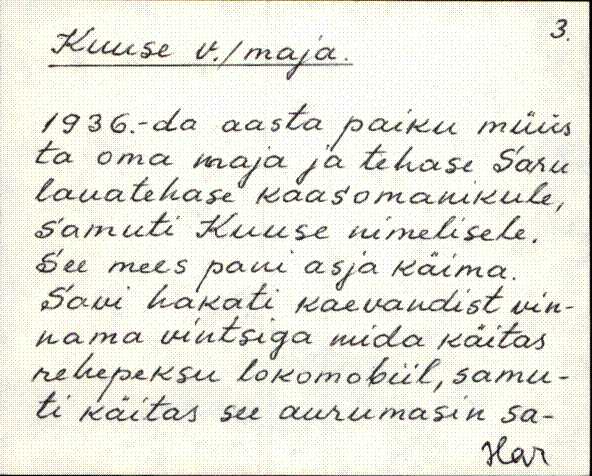 3.
Kuuse v./maja.
1936.-da aasta paiku müüs
ta oma maja ja tehase Saru
lauatehase kaasomanikule,
samuti Kuuse nimelisele.
See mees pani asja käima.
Savi hakati kaevandist vin-
nama vintsiga mida käitas
rehepeksu lokomobiil, samu-
ti käitas see aurumasin sa-
Har